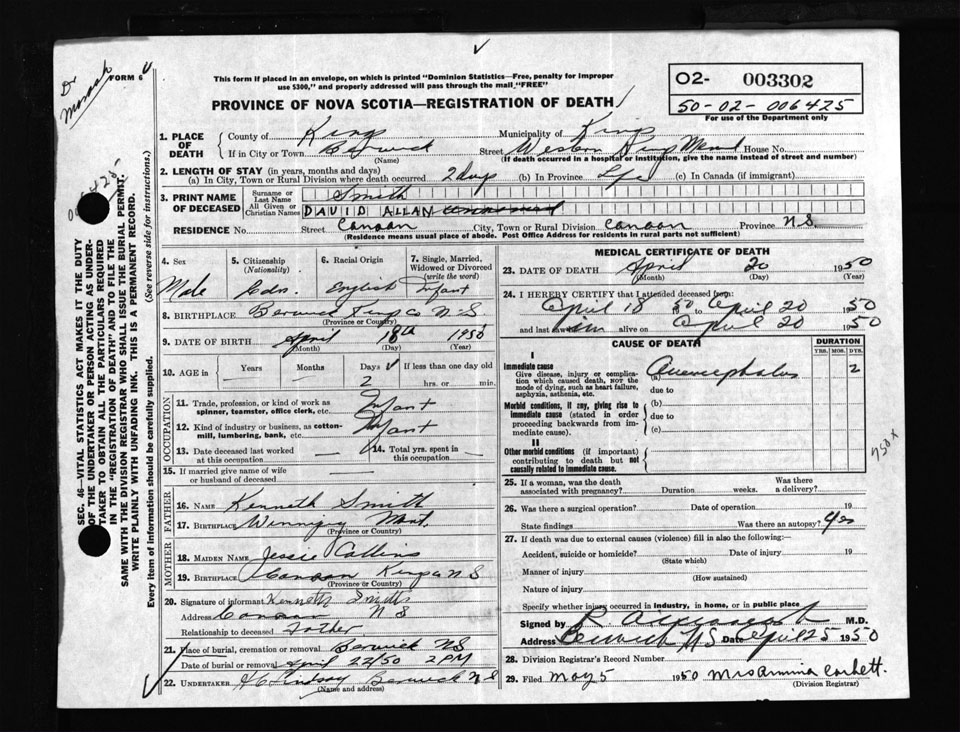 Dr Morash
FORM 6
This form if placed in an envelope, on which is printed "Dominion Statistics—Free, penalty for improper
use $300," and properly addressed will pass through the mail "FREE"
PROVINCE OF NOVA SCOTIA—REGISTRATION OF DEATH
O2- 003302
50-02-006425
For use of the Department only
1. PLACE OF DEATH
County of Kings Municipality of Kings
If in City or Town Berwick Street Western Kings Meml House No.
(Name) (If death occurred in a hospital or institution, give the name instead of street and number)
2. LENGTH OF STAY (in years, months and days)
(a) In City, Town or Rural Division where death occurred 2 days (b) In Province Life (c) In Canada (if immigrant)
3. PRINT NAME OF DECEASED
Surname or Last Name Smith
All Given or Christian Names DAVID ALLAN
RESIDENCE No. Street Canaan City, Town or Rural Division Canaan Province N.S.
(Residence means usual place of abode. Post Office Address for residents in rural parts not sufficient)
4. Sex Male
5. Citizenship (Nationality) Cdn.
6. Racial Origin English
7. Single, Married, Widowed or Divorced (write the word) Infant
8. BIRTHPLACE Berwick Kings Co N.S
(Province or Country)
9. DATE OF BIRTH April 18th 1950
(Month) (Day) (Year)
10. AGE in Years Months Days 2 If less than one day old hrs. or min.
OCCUPATION
11. Trade, profession, or kind of work as spinner, teamster, office clerk, etc. Infant
12. Kind of industry or business, as cotton-mill, lumbering, bank, etc. Infant
13. Date deceased last worked at this occupation
14. Total yrs. spent in this occupation
15. If married give name of wife or husband of deceased
FATHER
16. NAME Kenneth Smith
17. BIRTHPLACE Winnipeg Mant.
(Province or Country)
MOTHER
18. MAIDEN NAME Jessie Collins
19. BIRTHPLACE Canaan Kings Co N S
(Province or Country)
20. Signature of informant Kenneth Smith
Address Canaan N S
Relationship to deceased Father
21. Place of burial, cremation or removal Berwick NS
Date of burial or removal April 22/50 2 PM
22. UNDERTAKER H C Lindsay Berwick N S
(Name and address)
MEDICAL CERTIFICATE OF DEATH
23. DATE OF DEATH April 20 1950
(Month) (Day) (Year)
24. I HEREBY CERTIFY that I attended deceased from:
April 18 1950 to April 20 1950
and last saw him alive on April 20 1950
CAUSE OF DEATH
DURATION
YRS. MOS. DYS.
I
Immediate cause
Give disease, injury or complication which caused death, NOT the mode of dying, such as heart failure, asphyxia, asthenia, etc.
(a) Anencephalus 2
due to
Morbid conditions, if any, giving rise to immediate cause (stated in order proceeding backwards from immediate cause).
(b)
due to
(c)
II
Other morbid conditions (if important) contributing to death but not causally related to immediate cause.
750X
25. If a woman, was the death associated with pregnancy? Duration weeks. Was there a delivery?
26. Was there a surgical operation? Date of operation 19
State findings Was there an autopsy? Yes
27. If death was due to external causes (violence) fill in also the following:—
Accident, suicide or homicide? Date of injury 19
(State which)
Manner of injury
(How sustained)
Nature of injury
Specify whether injury occurred in industry, in home, or in public place
Signed by M.D.
Address Berwick N.S Date April 25 1950
28. Division Registrar's Record Number
29. Filed May 5 1950 Mrs Armina Corbett.
(Division Registrar)
SEC. 46—VITAL STATISTICS ACT MAKES IT THE DUTY
OF THE UNDERTAKER OR PERSON ACTING AS UNDERTAKER TO OBTAIN ALL THE PARTICULARS REQUIRED
IN THE "REGISTRATION OF DEATH" AND TO FILE THE
SAME WITH THE DIVISION REGISTRAR WHO SHALL ISSUE THE BURIAL PERMIT
WRITE PLAINLY WITH UNFADING INK. THIS IS A PERMANENT RECORD.
Every item of information should be carefully supplied. (See reverse side for instructions.)